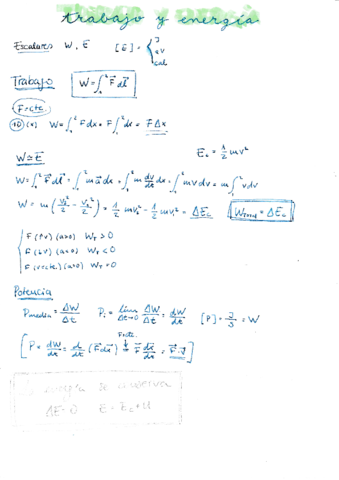 trabajo y energía
Escalares W, E [E] = { J eV cal
Trabajo W = ∫ₐᵇ F⃗ dl⃗
F = cte.
1D (x) W = ∫ₐᵇ F dx = F ∫ₐᵇ dx = F Δx
W ≃ E Ec = 1/2 mv²
W = ∫ₐᵇ F⃗ dl⃗ = ∫ₐᵇ m a⃗ dx = ∫ₐᵇ m dv/dt dx = ∫ₐᵇ m v dv = m ∫ₐᵇ v dv
W = m (v_b²/2 - v_a²/2) = 1/2 m v_b² - 1/2 m v_a² = ΔEc W_total = ΔEc
F (↑v) (a>0) W_T > 0
F (↓v) (a<0) W_T < 0
F (v=cte.) (a=0) W_T = 0
Potencia
P media = ΔW/Δt Pᵢ = lim Δt→0 ΔW/Δt = dW/dt [P] = J/s = W
F=cte.
[P = dW/dt = d/dt (F⃗ dx⃗) = F⃗ dx⃗/dt = F⃗ · v⃗]
energía se conserva
ΔE = 0 E = Ec + U